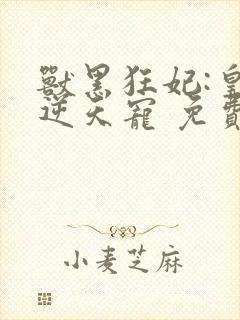 獸黑狂妃:皇
逆天寵 免費
小麦芝麻